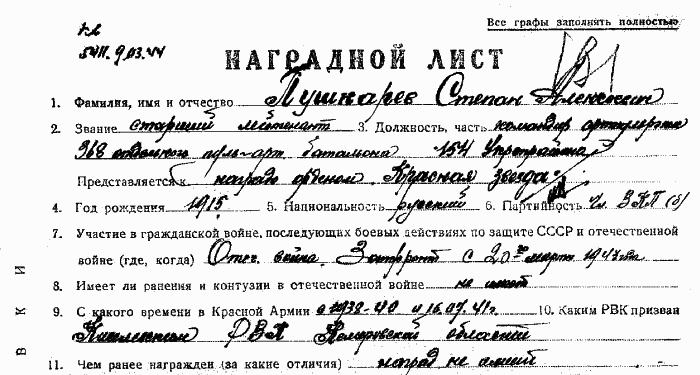 Все графы заполнять полностью
9.03.44
НАГРАДНОЙ ЛИСТ
1. Фамилия, имя и отчество Пушкарев Степан
2. Звание старший лейтенант 3. Должность, часть командир
368 отдельного пул-арт. батальона 154 Укрепрайона
Представляется к награде орденом „Красная звезда“
4. Год рождения 1915 5. Национальность русский 6. Партийность чл. ВКП(б)
7. Участие в гражданской войне, последующих боевых действиях по защите СССР и отечественной
войне (где, когда) Отеч. война. Запфронт с 20 марта 1943 года
8. Имеет ли ранения и контузии в отечественной войне не имеет
9. С какого времени в Красной Армии с 1938-40 и 16.07.41г. 10. Каким РВК призван
РВК Кемеровской области
11. Чем ранее награжден (за какие отличия) наград не имеет
В К И